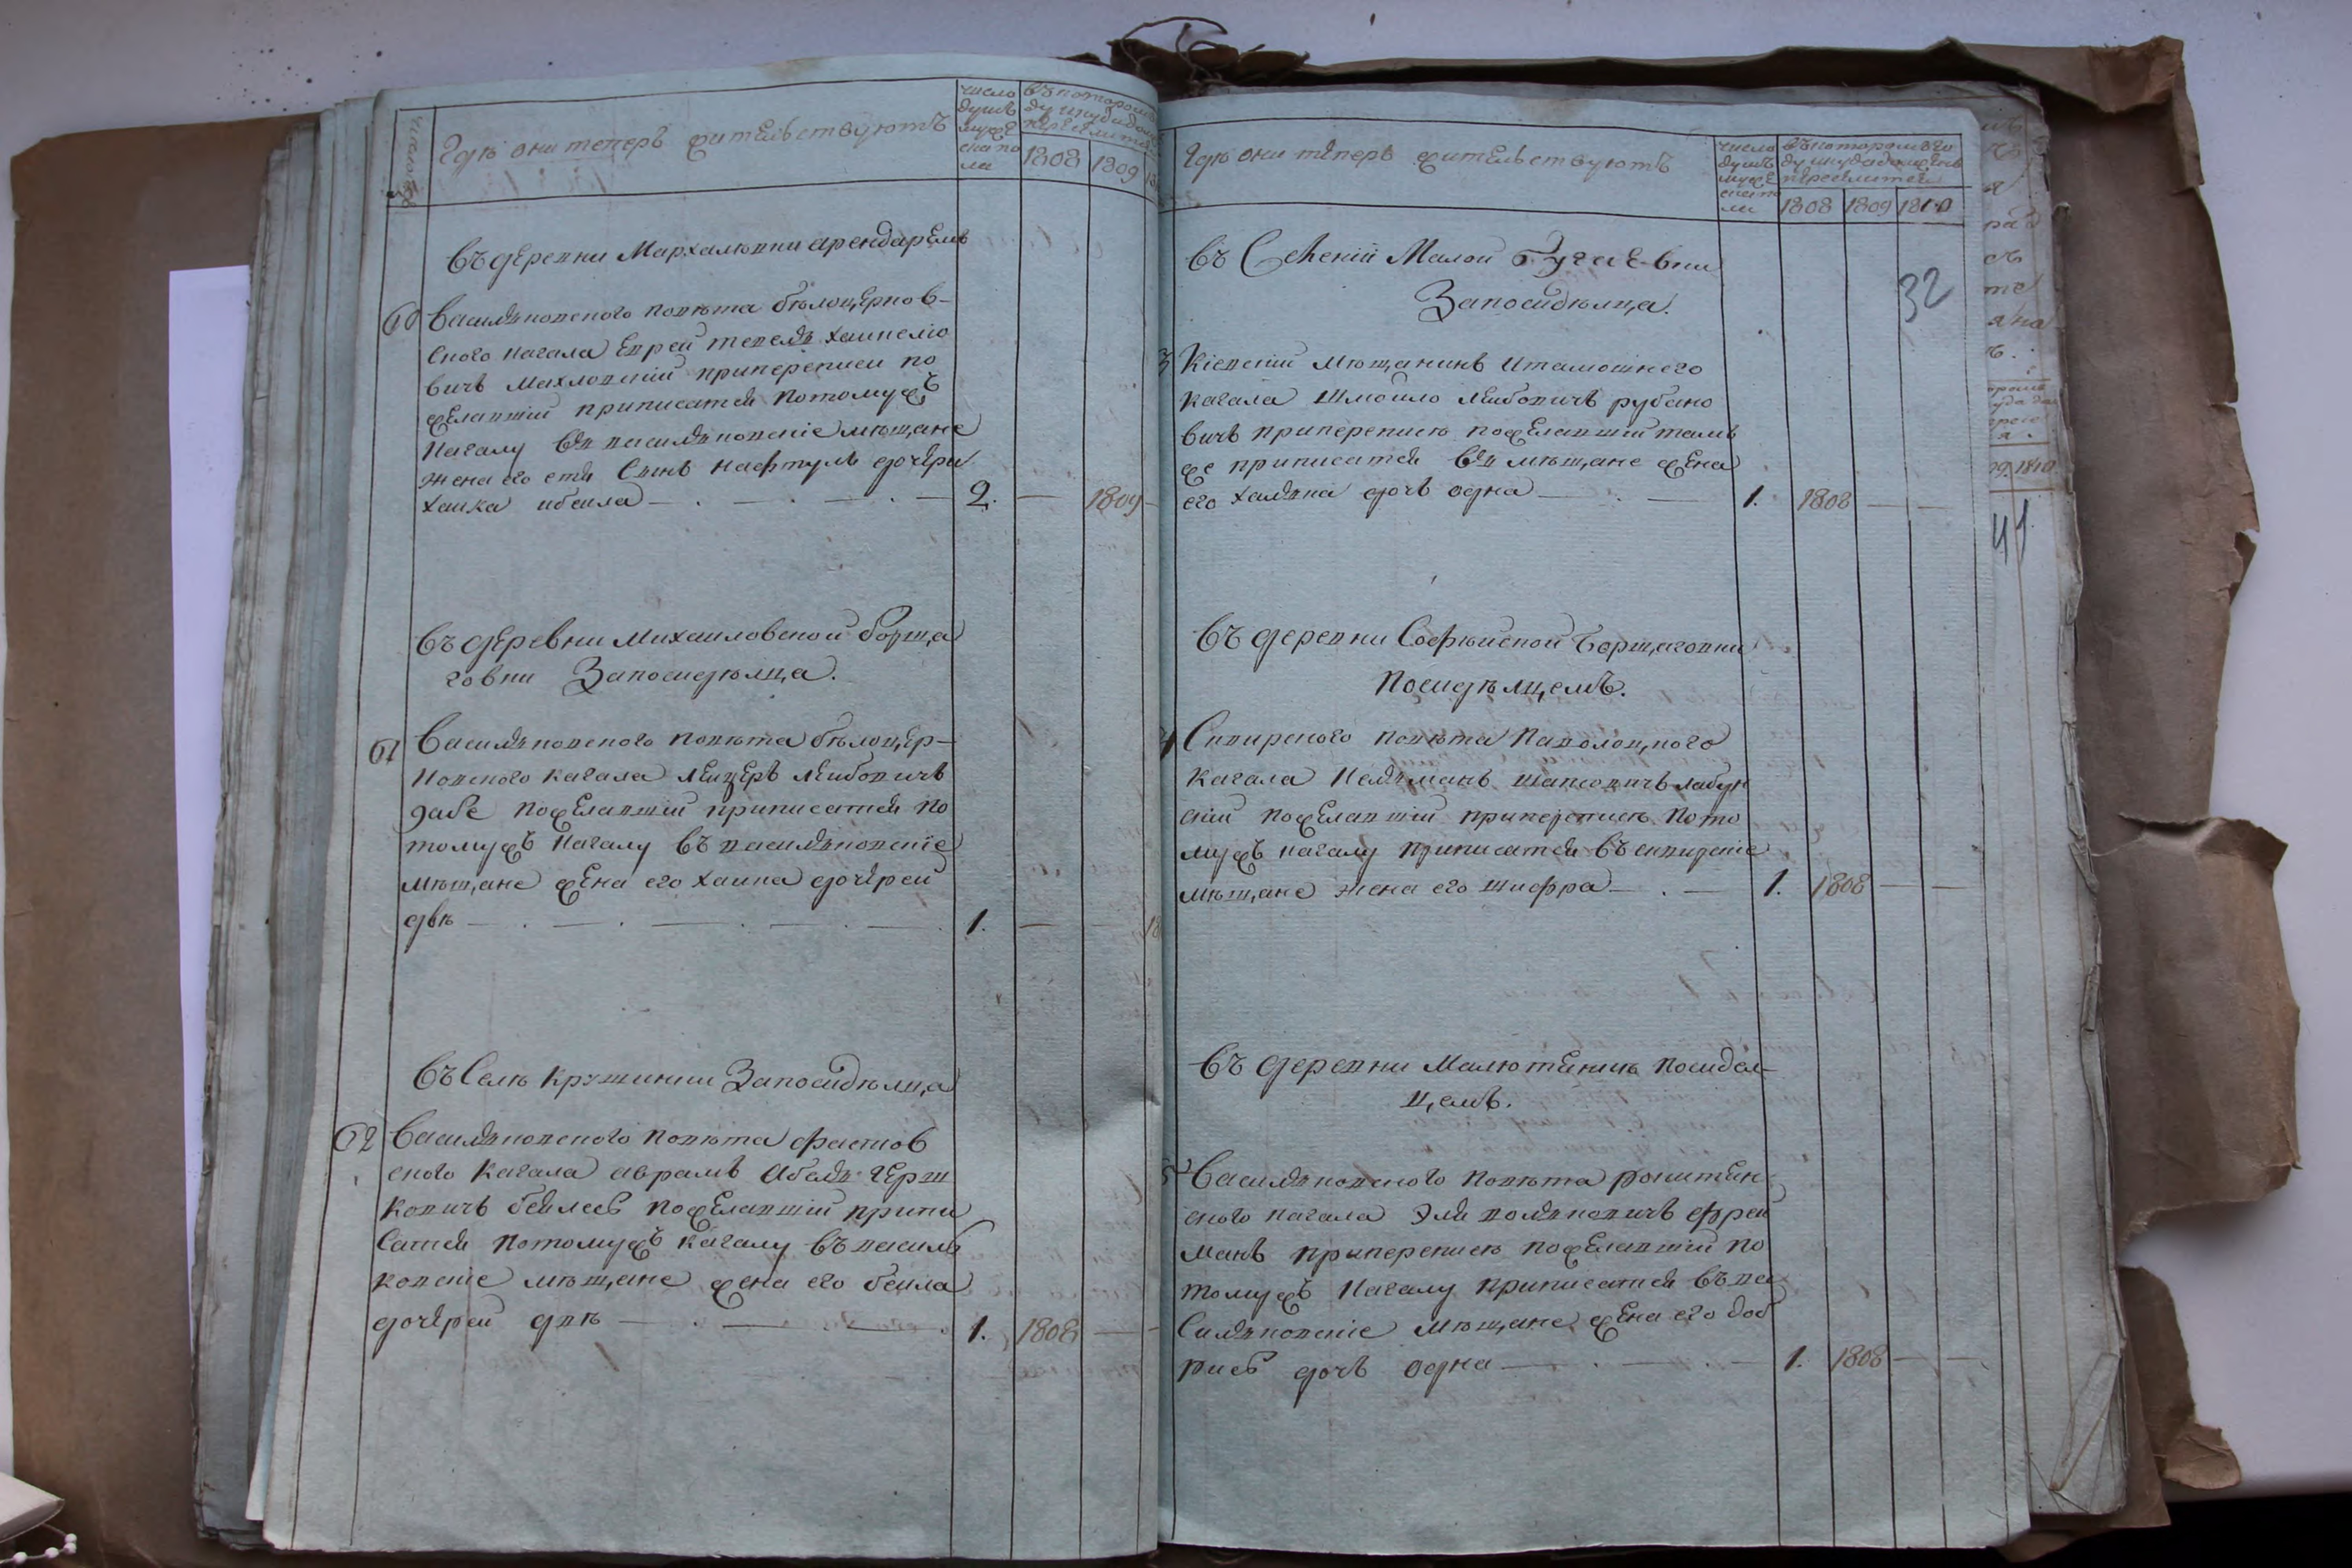 число
Где они теперь жительствуютъ
число
душъ
муже
ска по
ла
въ которомъ
году куда дол
переселится
1808
1809
въ деревни Мархалювки арендаремъ
60
Васильковского повѣта бѣлоцерков-
ского кагала Еврей тевель хаимкело
вичъ Махловский припереписи по
желавший приписатся потомужъ
кагалу въ васильковские мѣщане
жена его етя Сынъ нафтуль дочери
хаика ибеила
2.
1809
въ деревни Михаиловской борща
говки Запосидѣлца.
61
Васильковского повѣта бѣлоцер-
ковского кагала лейзеръ лейбовичъ
пожелавший приписатся по
томужъ кагалу въ васильковские
мѣщане жена его хаика дочерей
двѣ
1.
18
въ Селѣ крушинки Запосидѣлца
62
Васильковского повѣта фастов
ского кагала аврамъ Абель герш
ковичъ бейлесъ пожелавший припи
сатся потомужъ кагалу въ василь
ковские мѣщане жена его беила
дочерей двѣ
1.
1808
Где они теперь жительствуютъ
число
душъ
муже
ска по
ла
въ которомъ го
ду куда должень
переселится
1808
1809
1810
32
въ Селений Малой Бугаевки
Запосидѣлца.
3
Киевский мѣщанинъ итамошнего
кагала Шмойло лейбовичъ рубано
вичъ приперепись пожелавший тамъ
же приписатся въ мѣщане жена
его халяна дочь одна
1.
1808
въ деревни Софѣйской Борщаговки
Посидѣлцемъ.
4
Сквирского повѣта Паволоцкого
кагала Кальманъ шапсовичъ лабун
ский пожелавший приперепись пото
мужъ кагалу приписатся въ сквирские
мѣщане жена его шифра
1.
1808
въ деревни Малютянкѣ посидел-
цемъ.
5
Васильковского повѣта рокитян
ского кагала Эля вольковичъ фрей
манъ приперепись пожелавший по
томужъ кагалу приписатся въ ва
сильковские мѣщане жена его доб
рисъ дочь одна
1.
1808
41